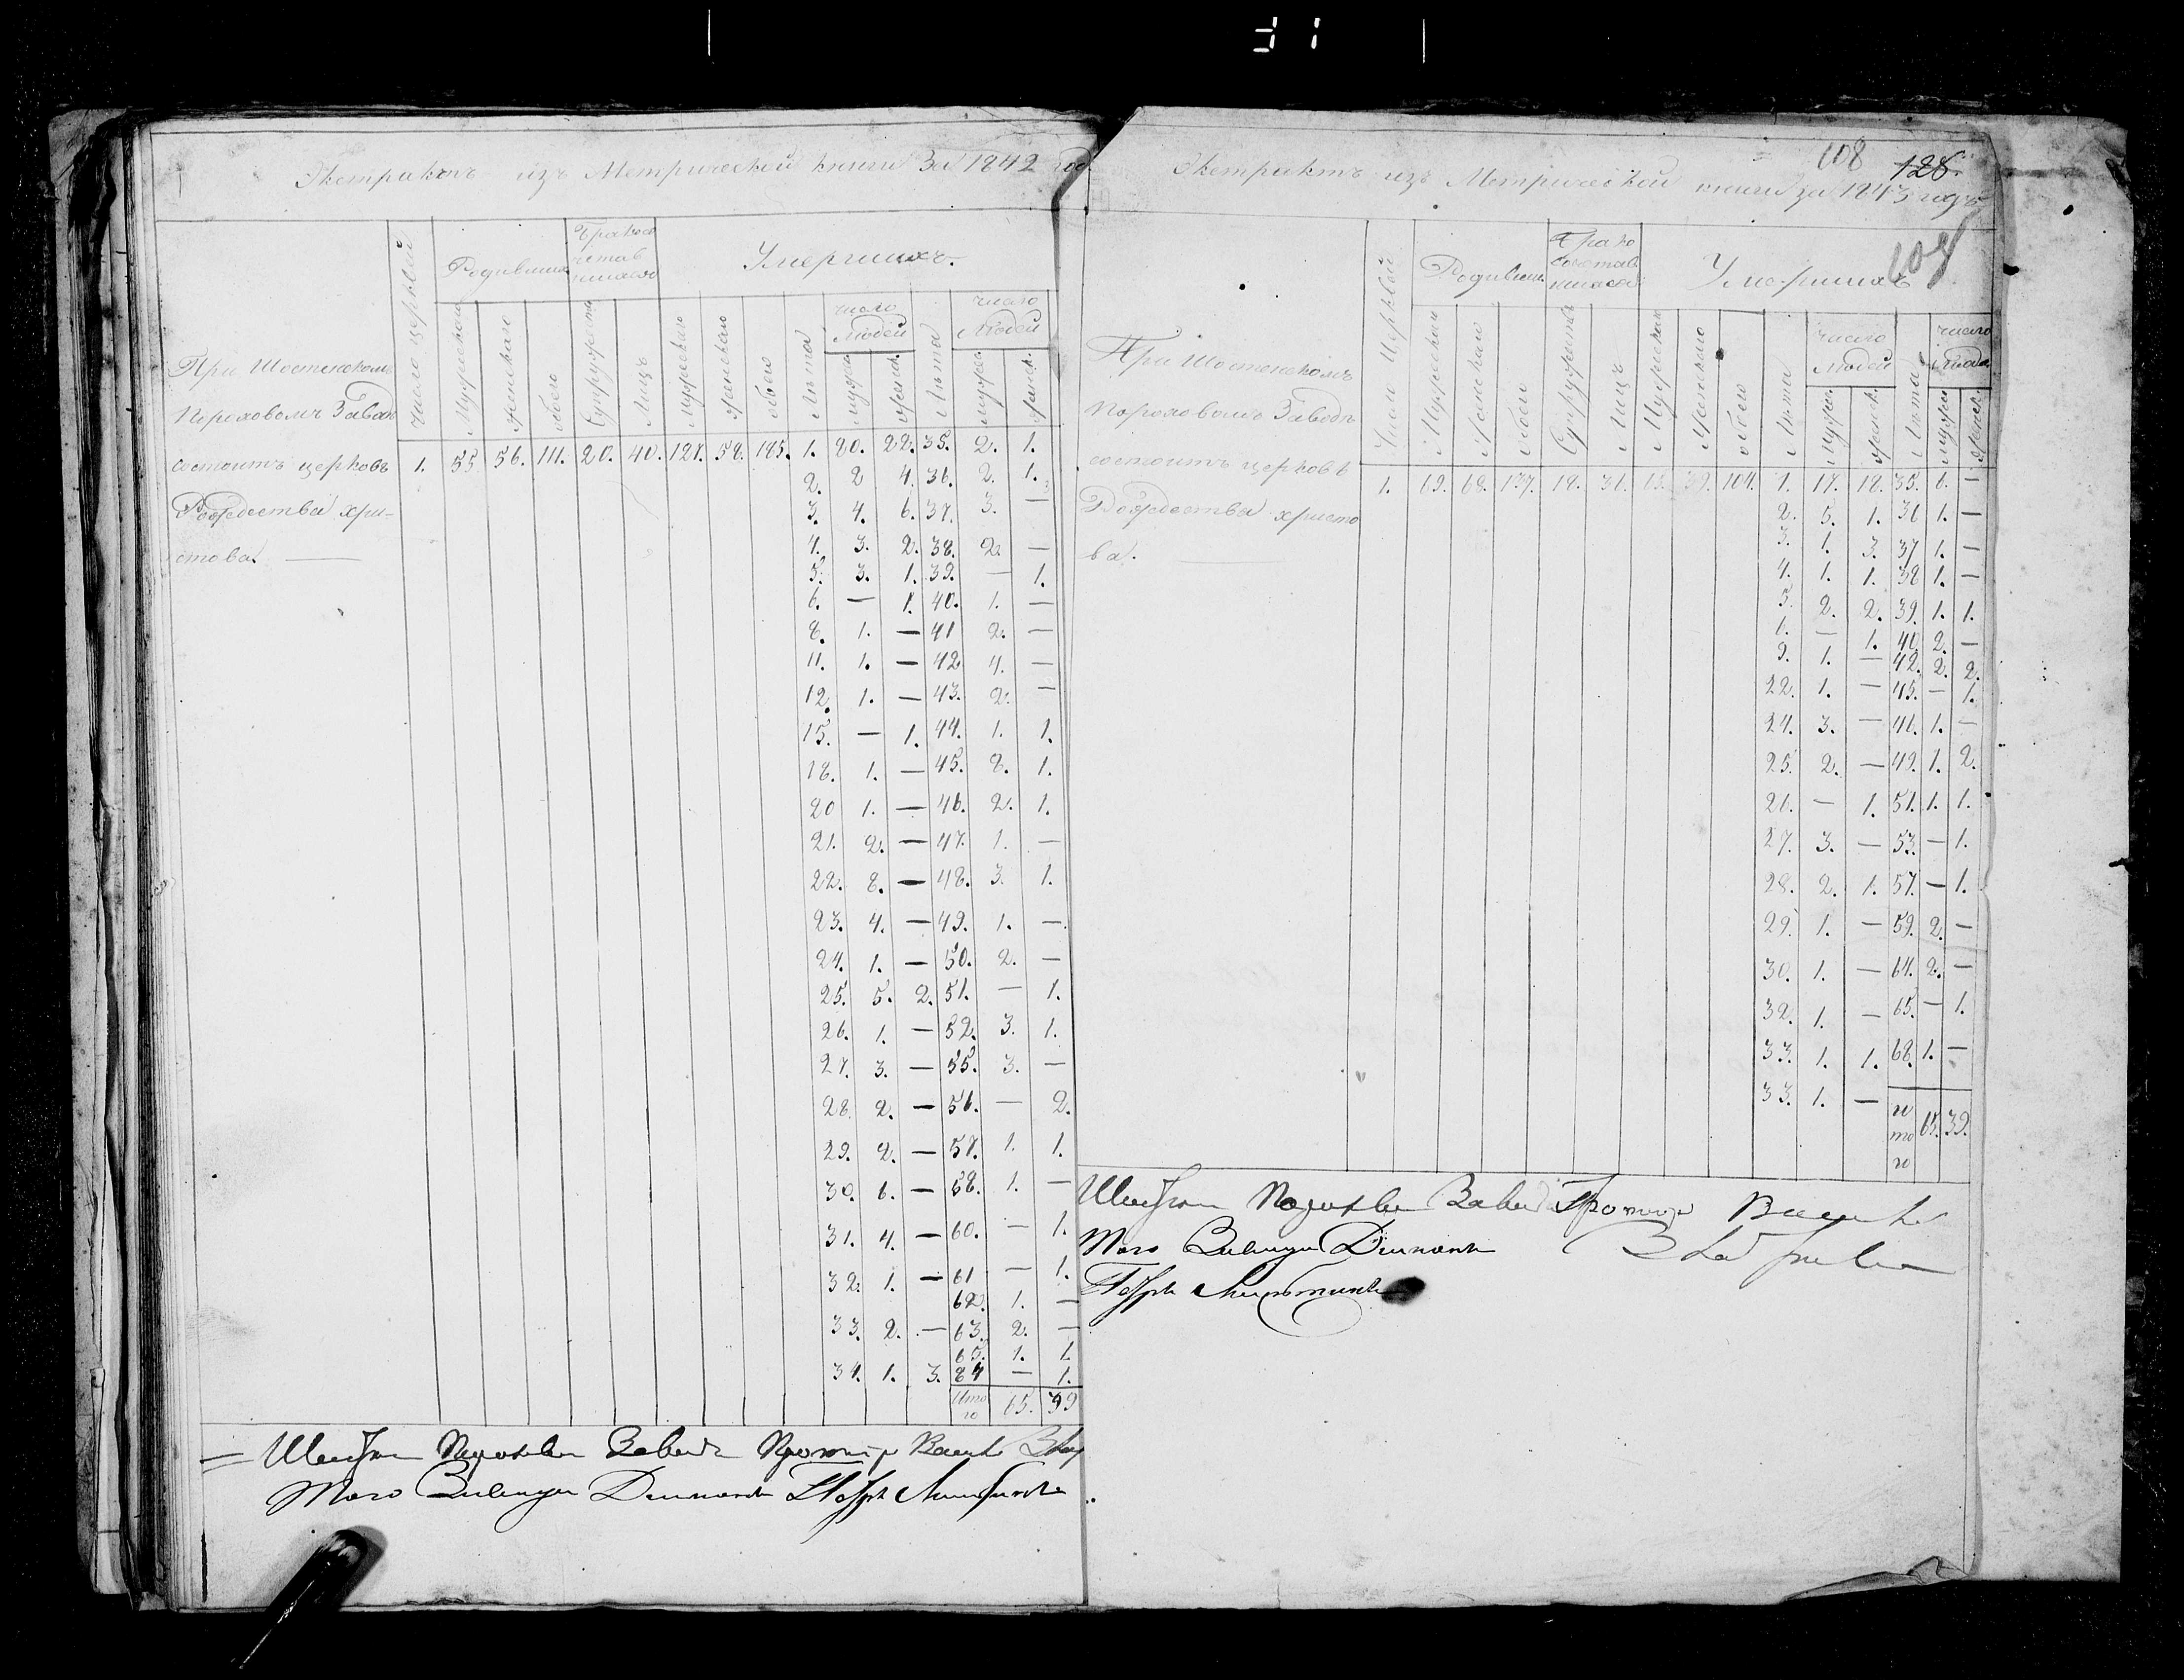 Экстрактъ изъ Метрической книги За 1842 год
Число церквей
Родившихся
Умершихъ.
Мужескаго
Женскаго
обоего
Супружества
Лицъ
мужескаго
женскаго
обоего
Лѣта
число Людей
мужеск.
женск.
Лѣта
число Людей
мужеск.
женск.
При Шостенскомъ
Пороховомъ Заводѣ
состоитъ церковь
Рождества Хри-
стова. —
1. 55. 56. 111. 20. 40. 127. 58. 185. 1. 20. 22. 35. 2. 1.
2. 2 4. 36. 2. 1.
3. 4. 6. 37. 3. —
4. 3. 2. 38. 2. —
5. 3. 1. 39. — 1.
6. — 1. 40. 1. —
8. 1. — 41 2. —
11. 1. — 42 4. —
12. 1. — 43. 2. —
15. — 1. 44. 1. 1.
18. 1. — 45. 2. 1.
20 1. — 46. 2. 1.
21. 2. — 47. 1. —
22. 8. — 48. 3. 1.
23. 4. — 49. 1. —
24. 1. — 50. 2. —
25. 5. 2. 51. — 1.
26. 1. — 52. 3. 1.
27. 3. — 55. 3. —
28. 2. — 56. — 2.
29. 2. — 57. 1. 1.
30. 6. — 58. 1. —
31. 4. — 60. — 1.
32. 1. — 61 — 1.
62. 1. —
33. 2. — 63. 2. —
65. 1. 1.
34. 1. 3. 84 — 1.
Итого 65. 39
Того
108 128.
Экстрактъ изъ Метрической книги за 1843 годъ
Число Церквей
Родивших.
Умершихъ
Мужескаго
Женскаго
обоего
Супружества
Лицъ
Мужескаго
Женскаго
обоего
Лѣта
число Людей
мужеск.
женск.
Лѣта
число Людей
мужеск.
женск.
При Шостенскомъ
Пороховомъ Заводѣ
состоитъ церковь
Рождества Христо
ва. —
1. 69. 68. 137. 18. 36. 65. 39. 104. 1. 17. 18. 35. 6. —
2. 5. 1. 36 1. —
3. 1. 3. 37 1. —
4. 1. 1. 38 1. —
5. 2. 2. 39. 1. 1.
— 1. 40. 2. —
9. 1. — 42. 2. 2.
22. 1. — 45. — 1.
24. 3. — 46. 1. —
25. 2. — 49. 1. 2.
26. — 1. 51. 1. 1.
27. 3. — 53. — 1.
28. 2. 1. 57. — 1.
29. 1. — 59. 2. —
30. 1. — 64. 2. —
32. 1. — 65. — 1.
33. 1. 1. 68. 1. —
33. 1. —
итого 65. 39.
Того